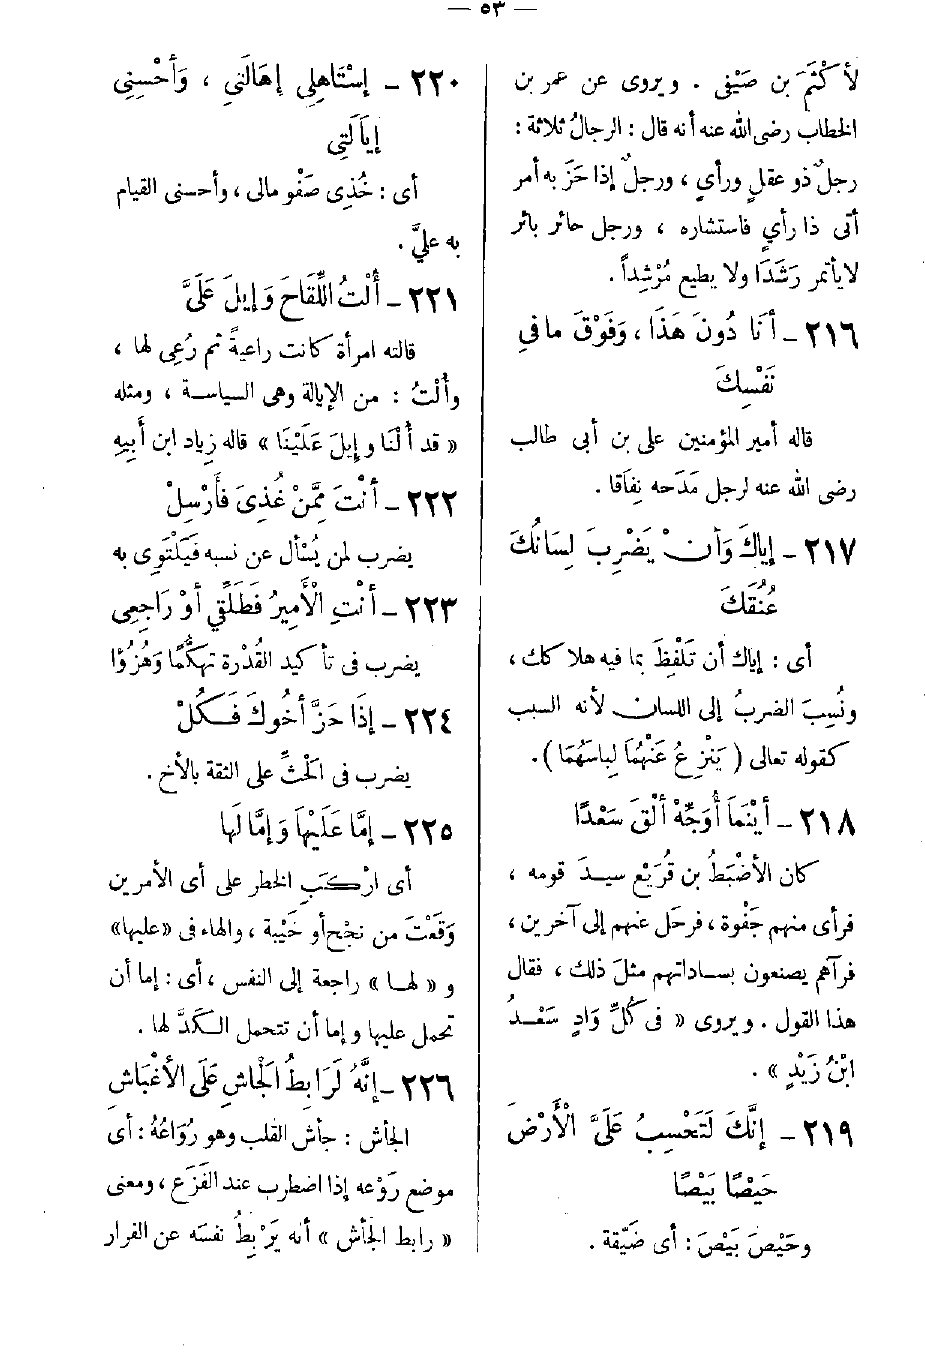 — ٥٣ —
لأكْثَمَ بن صَيْفى . ويروى عن عمر بن
الخطاب رضى الله عنه أنه قال : الرجالُ ثلاثة :
رجلٌ ذو عقلٍ ورأىٍ ، ورجلٌ إذا حَزَ به أمر
أتى ذا رأىٍ فاستشاره ، ورجل حائر بائر
لايأتمر رَشَدَا ولا يطيع مُرْشِداً .
٢١٦ - أنَا دُونَ هَذَا ، وَفَوْقَ مافى
نَفْسِكَ
قاله أمير المؤمنين على بن أبى طالب
رضى الله عنه لرجل مَدَحه نِفاَقا .
٢١٧ - إياكَ وَأن يَضْرِبَ لِسَانُكَ
عُنُقَكَ
أى : إياك أن تَلْفِظَ بما فيه هلاكك ،
ونُسِبَ الضربُ إلى اللسان لأنه السبب
كقوله تعالى ( يَنْزِعُ عَنْهُمَا لِبَاسَهُمَا ) .
٢١٨ - أيْنَمَا أُوَجِّهْ ألْقَ سَعْدًا
كان الأضْبَطُ بن قُرَيْع سيدَ قومه ،
فرأى منهم جَفْوة ، فرحَل عنهم إلى آخرين ،
فرآهم يصنعون بساداتهم مثلَ ذلك ، فقال
هذا القول . ويروى « فى كُلِّ وَادٍ سَعْدُ
ابْنُ زَيْدٍ » .
٢١٩ - إنَّكَ لَتَحْسِبُ عَلَىَّ الْأَرْضَ
حَيْصًا بَيْصًا
وحَيْصَ بَيْصَ : أى ضَيِّقة .
٢٢٠ - إسْتَاهِلِى إهَالَتِى ، وَأحْسِنِى
إيَالَتِى
أى : خُذِى صَفْو مالى ، وأحسنى القيام
به علىَّ .
٢٢١ - أُلْتُ اللِّقَاحَ وَإيلَ عَلَىَّ
قالته امرأة كانت راعيةً ثم رُعِى لها ،
وأُلْتُ : من الإيالة وهى السياسة ، ومثله
« قد أُلْنَا وإيلَ عَلَيْنَا » قاله زِياد ابن أَبِيهِ
٢٢٢ - أنْتَ مِمَّنْ غُذِىَ فَأَرْسِلْ
يضرب لمن يُسْأل عن نسبه فَيَلْتَوِى به
٢٢٣ - أنْتِ الْأَمِيرُ فَطَلِّقِى أوْ رَاجِعِى
يضرب فى تأكيد القُدْرة تهكُّمًا وَهُزُؤا
٢٢٤ - إذَا حَزَّ أخُوكَ فَكُلْ
يضرب فى الحثِّ على الثقة بالأخ .
٢٢٥ - إمَّا عَلَيْهَا وَإمَّا لَهَا
أى ارْكَبِ الخطر على أى الأمرين
وَقَعْتَ من نجْح أو خَيْبة ، والهاء فى «عليها»
و « لها » راجعة إلى النفس ، أى : إما أن
تحمل عليها وإما أن تتحمل الكَدَّ لها .
٢٢٦ - إنَّهُ لَرَابِطُ الْجَاشِ عَلَى الأغْبَاشِ
الجأش : جأش القلب وهو رُوَاعُهُ : أى
موضع رَوْعه إذا اضطرب عند الفَزَع ، ومعنى
« رابط الجأش » أنه يَرْبِطُ نفسَه عن الفرار